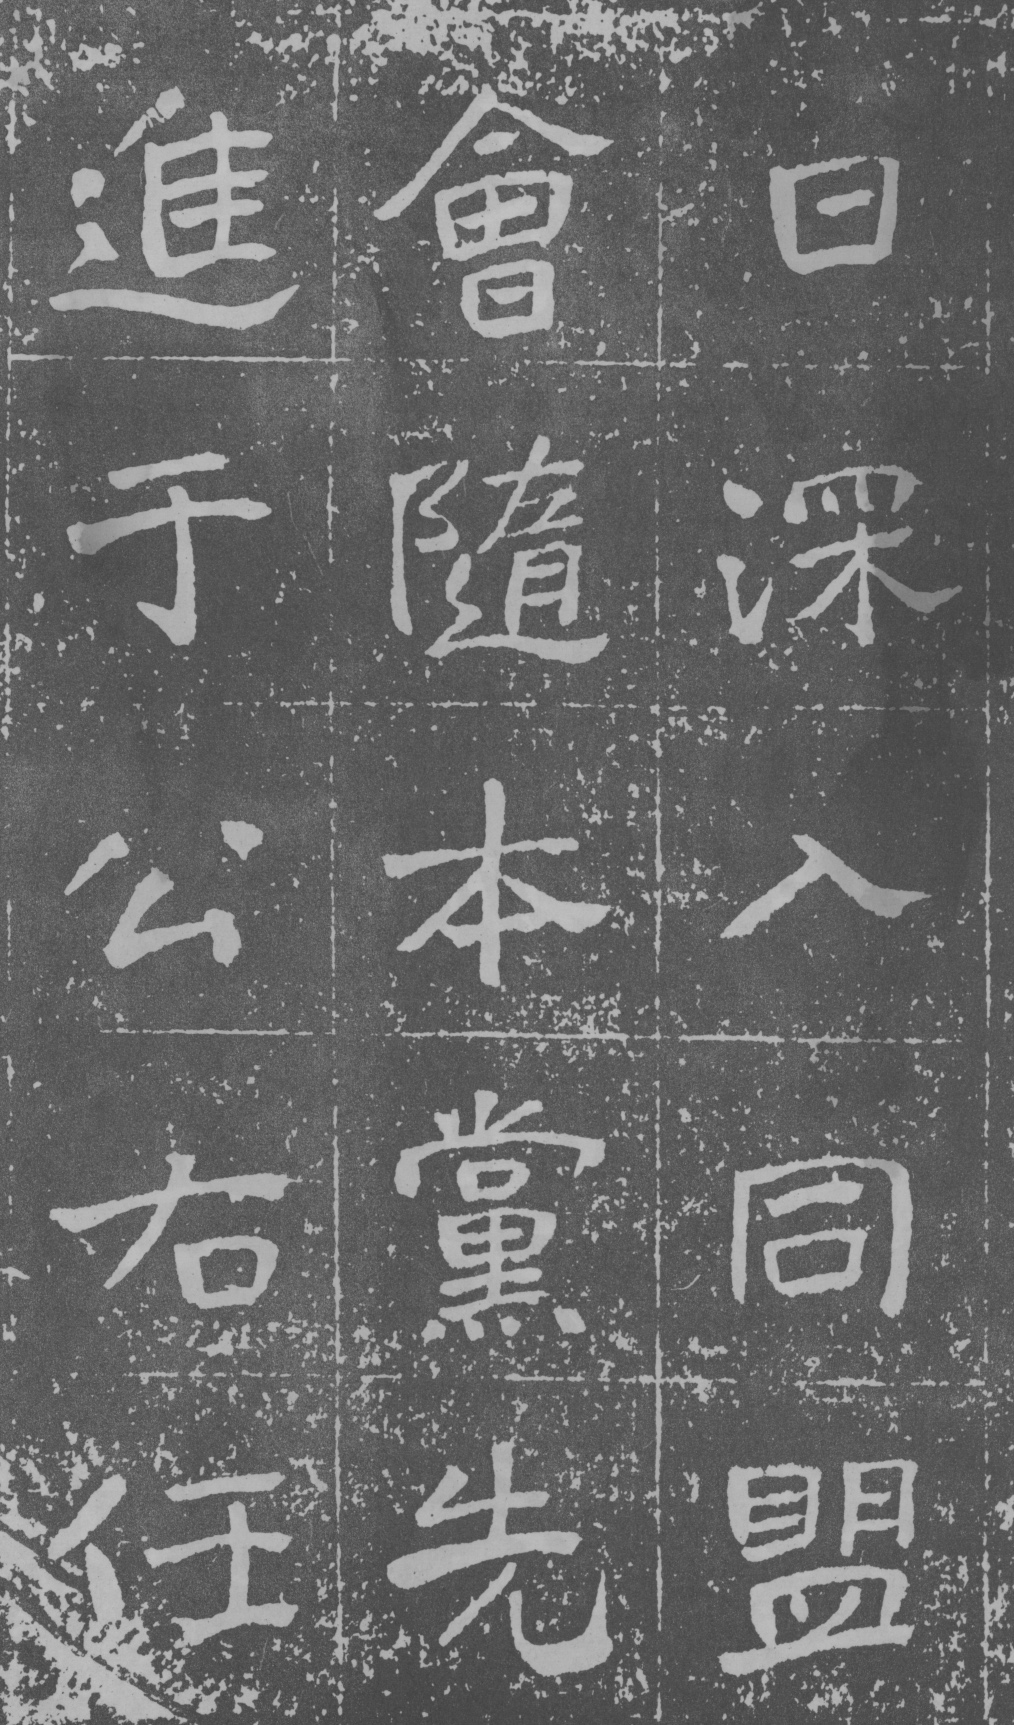 日深入同盟
會隨本黨先
進于公右任